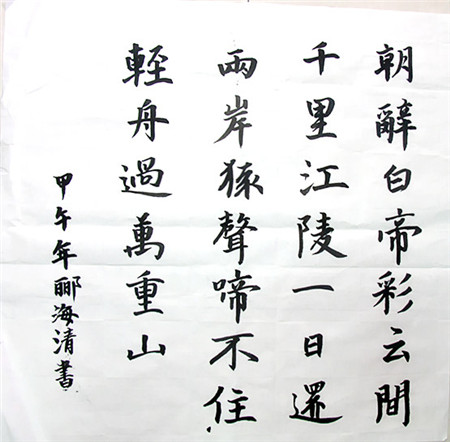 朝辭白帝彩云間
千里江陵一日還
兩岸猿聲啼不住
輕舟過萬重山
甲午年郦海清書